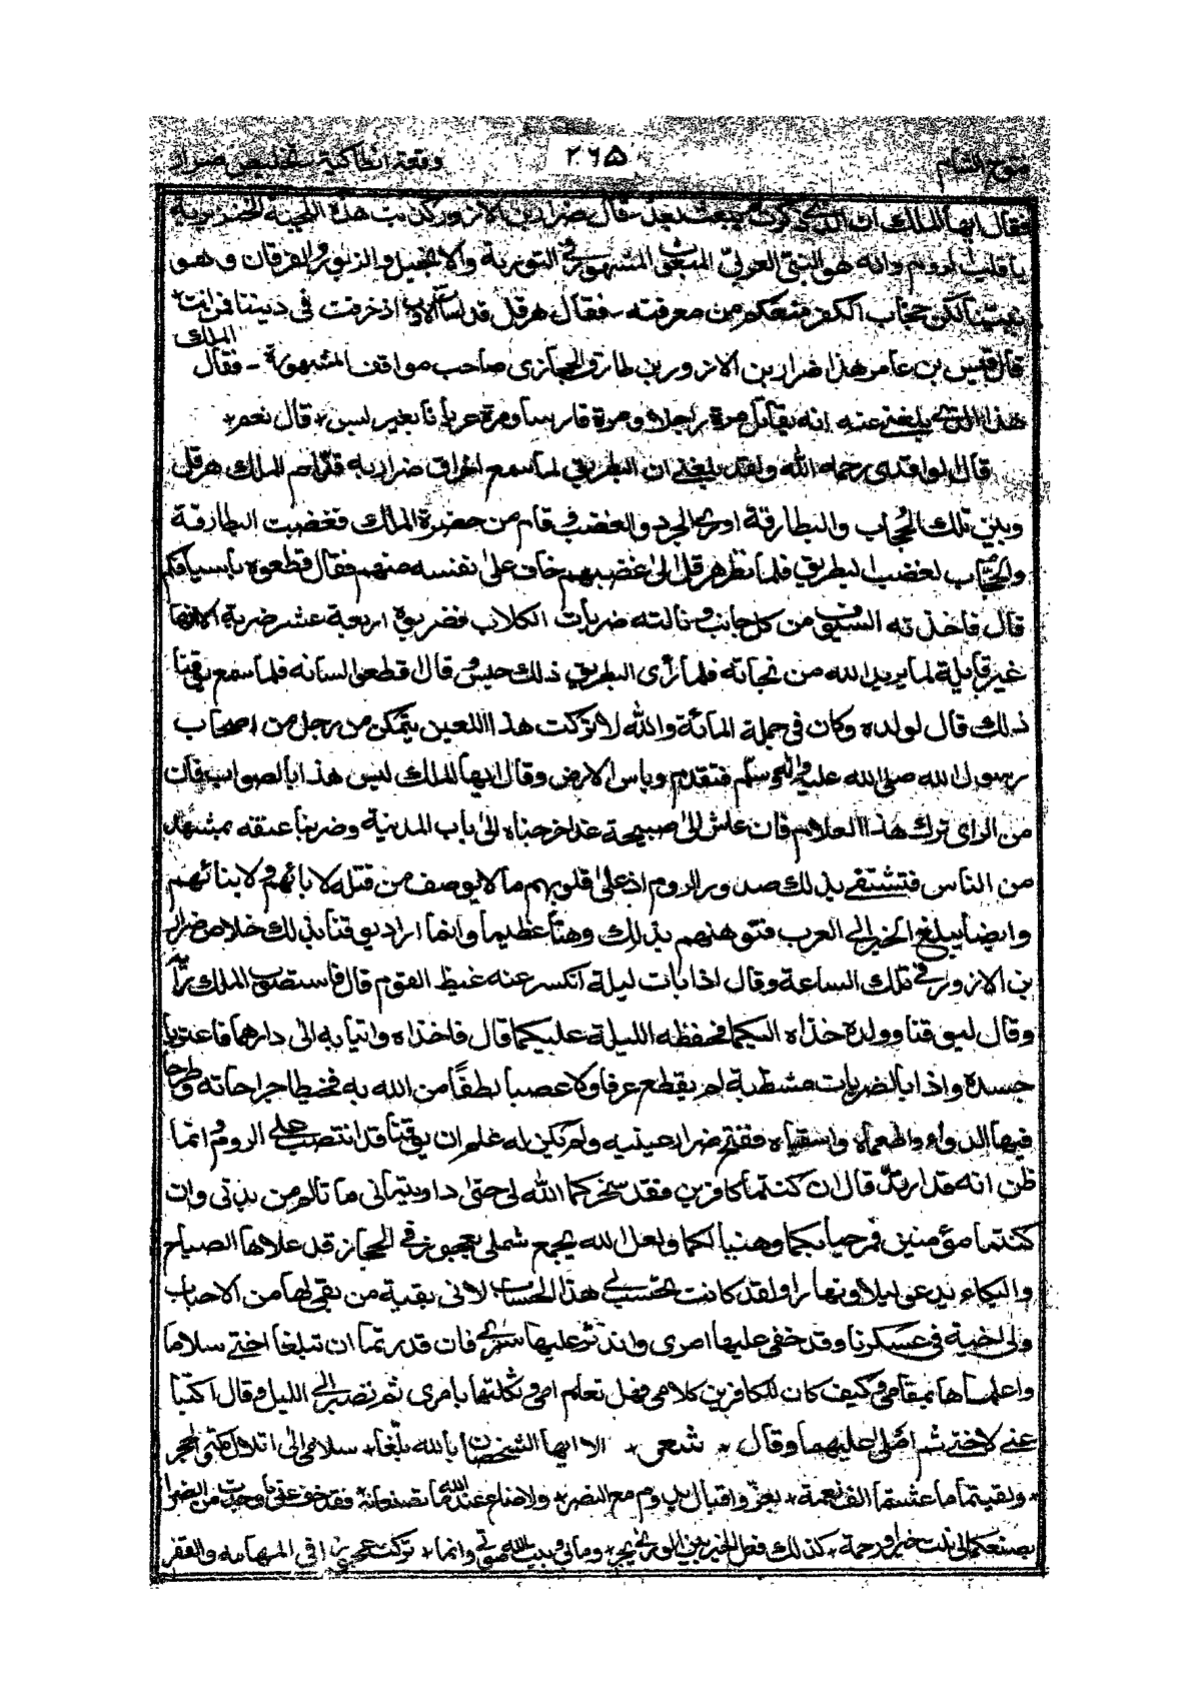 فتوح الشام
٢٦٥
وقعة انطاكية تخليص ضرار
فقال ايها الملك ان الذي ذكرت لم يبعث بعد قال ضرار بن الازور كذبت هذه اللحية الخنزيرية
يا قليب الروم وانه هو النبي العربي المبعوث المشهور في التورية والانجيل والزبور والفرقان وهو
نبينا لكن حجاب الكفر منعكم من معرفته - فقال هرقل قد اسأت الادب اذ خرقت في ديننا فمن انت
قال قيس بن عامر هذا ضرار بن الازور بن طارق الحجازي صاحب مواقف المشهورة - فقال الملك
هذا الذي بلغني عنه انه يقاتل مرة راجلا ومرة فارسا ومرة عريانا بغير لبس * قال نعم *
قال الواقدي رحمه الله ولقد بلغني ان البطريق لما سمع اخراق ضرار به قدام الملك هرقل
وبين تلك الحجاب والبطارقة اورى الحرد والغضب وقام من حضرة الملك فغضبت البطارقة
والحجاب لغضب البطريق فلما نظر هرقل الى غضبهم خاف على نفسه منهم فقال قطعوه باسيافكم
قال فاخذته السيوف من كل جانب ونالته ضربات الكلاب فضربوه اربعة عشر ضربة الا انها
غير قاتلة لما يريد الله من نجاته فلما رأى البطريق ذلك قال اقطعوا لسانه فلما سمع يوقنا
ذلك قال لولده وكان في جملة المائة والله لا تركت هذا اللعين يتمكن من رجل من اصحاب
رسول الله صلى الله عليه وسلم فتقدم وباس الارض وقال ايها الملك ليس هذا بالصواب فان
من الراى ترك هذا الغلام فان عاش الى صبيحة غد اخرجناه الى باب المدينة وضربنا عنقه بمشهد
من الناس فتشتفي بذلك صدور الروم اذ على قلوبهم ما لا يوصف من قتله لابائهم ولابنائهم
وايضا يبلغ الخبر الى العرب فتوهنهم بذلك وهنا عظيما وانما اراد يوقنا بذلك خلاص ضرار
بن الازور في تلك الساعة وقال اذا بات ليلة انكسر عنه غيظ القوم قال فاستصوب الملك رأيه
وقال ليوقنا وولده خذاه اليكما فحفظه الليلة عليكما قال فاخذاه واتيا به الى دارهما
جسده واذا بالضربات مشطبة لم يقطع عرقا ولا عصبا لطفا من الله به فخيطا جراحاته وطرحا
فيها الدواء واطعماه واسقياه ففتح ضرار عينيه ولم يكن له علم ان يوقنا قد انتصب على الروم وانما
ظن انه قد ارتد قال ان كنتما كافرين فقد سخركما الله لى حتى داويتمانى ما تالم من بدني وان
كنتما مؤمنين فمرحبا بكما وهنيا لكما ولعل الله يجمع شملى بعجوز في الحجاز قد علاها الصياح
والبكاء تدعى ليلا ونهارا ولقد كانت تحتسب لي هذا الحساب لانى بقية من بقى لها من الاحباب
ولى اخية في عسكرنا وقد خفى عليها امرى فان قدرتما ان تبلغا اختي سلاما
واعلماها بمقامي وكيف كان للكافرين كلامى فهل تعلم امي وثكلتها بامرى ثم نصبر الى الليل وقال اكتبا
عني لاختي ثم املى عليهما وقال * شعر * الا ايها الشخصان بالله بلغا * سلامى الى والحجر
* ولقيتما ما عشتما الف نعمة * بعز واقبال يدوم مع النصر * ولا ضاع عند الله ما تصنعانه * فقد خف عني ما وجدت من الضر *
بصنعكما لى نلت خيرا ورحمة * كذلك فعل الخير بين الورى يجري * وما بي وبيت الله موتى وانما * تركت عجوزا في المهامه والقفر